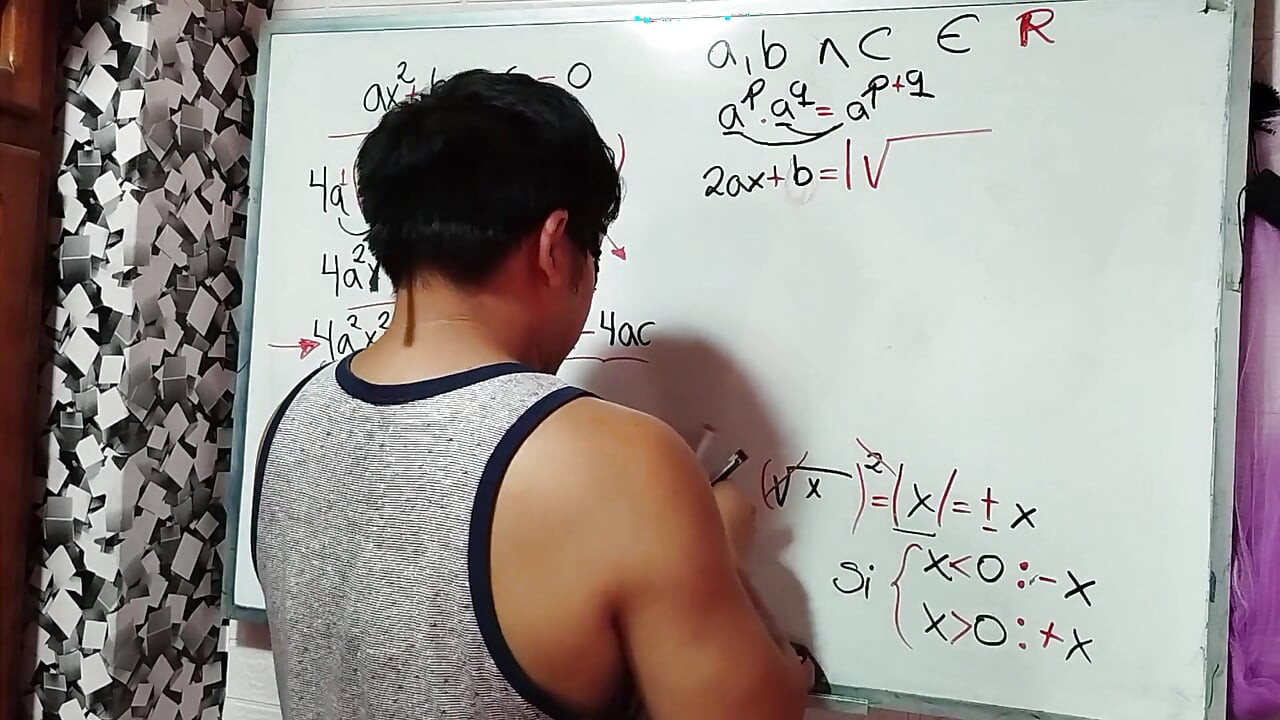 ax² + = 0
4a
4a²x
4a²x² - 4ac
a, b ∧ C ∈ R
a^p · a^q = a^(p+q)
2ax + b = |√
(√x)² = |x| = ± x
Si { x < 0 : - x
x > 0 : + x